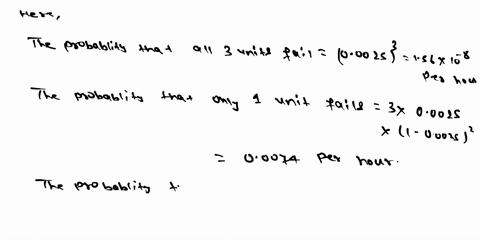 Here,
The probablity that all 3 units fail = (0.0025)³ = 1.56 × 10⁻⁸
Per hour
The probablity that only 1 unit fails = 3 × 0.0025
× (1 - 0.0025)²
= 0.0074 Per hour.
The probablity t